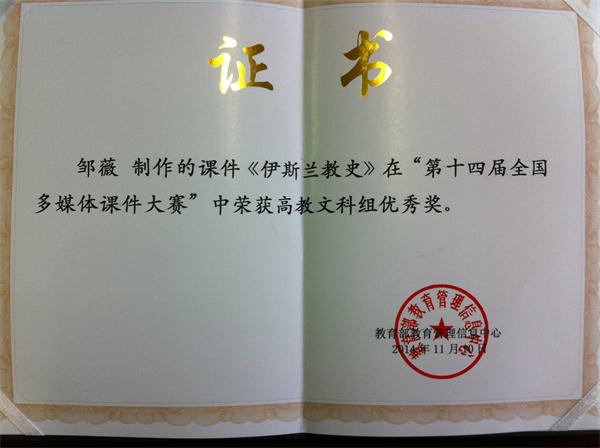 证 书
邹薇 制作的课件《伊斯兰教史》在“第十四届全国
多媒体课件大赛”中荣获高教文科组优秀奖。
教育部教育管理信息中心
教育部教育管理信息中心
2014年11月10日